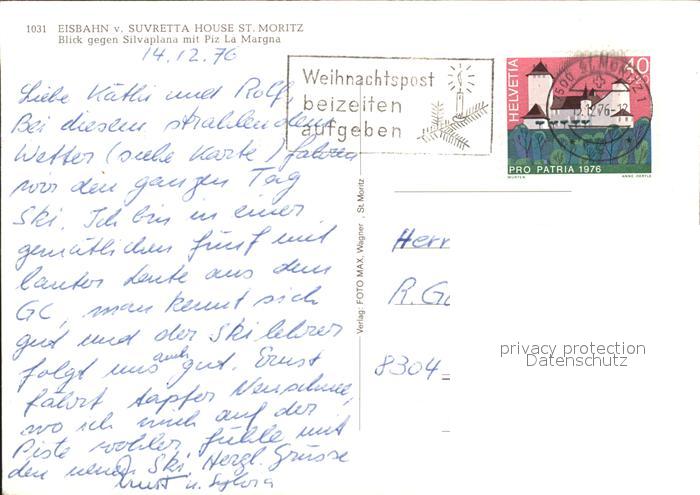 1031 EISBAHN v. SUVRETTA HOUSE ST. MORITZ
Blick gegen Silvaplana mit Piz La Margna
14.12.76
Liebe Käthi und Rolf,
Bei diesem strahlenden
Wetter (siehe Karte) fahren
wir den ganzen Tag
Ski. Ich bin in einer
gemütlichen fünf mit
lauter Leute aus dem
GC, man kennt sich
gut und der Skilehrer
folgt uns auch gut. Ernst
fährt tapfer
wo ich mich auf der
Piste wohler fühle mit
den neuen Ski. Herzl. Grüsse
Ernst u. Sylvia
Weihnachtspost
beizeiten
aufgeben
HELVETIA
40
7500 ST. MORITZ 1
12.76-12
PRO PATRIA 1976
Verlag: FOTO MAX, Wagner, St. Moritz
Herr
R. G
8304
privacy protection
Datenschutz